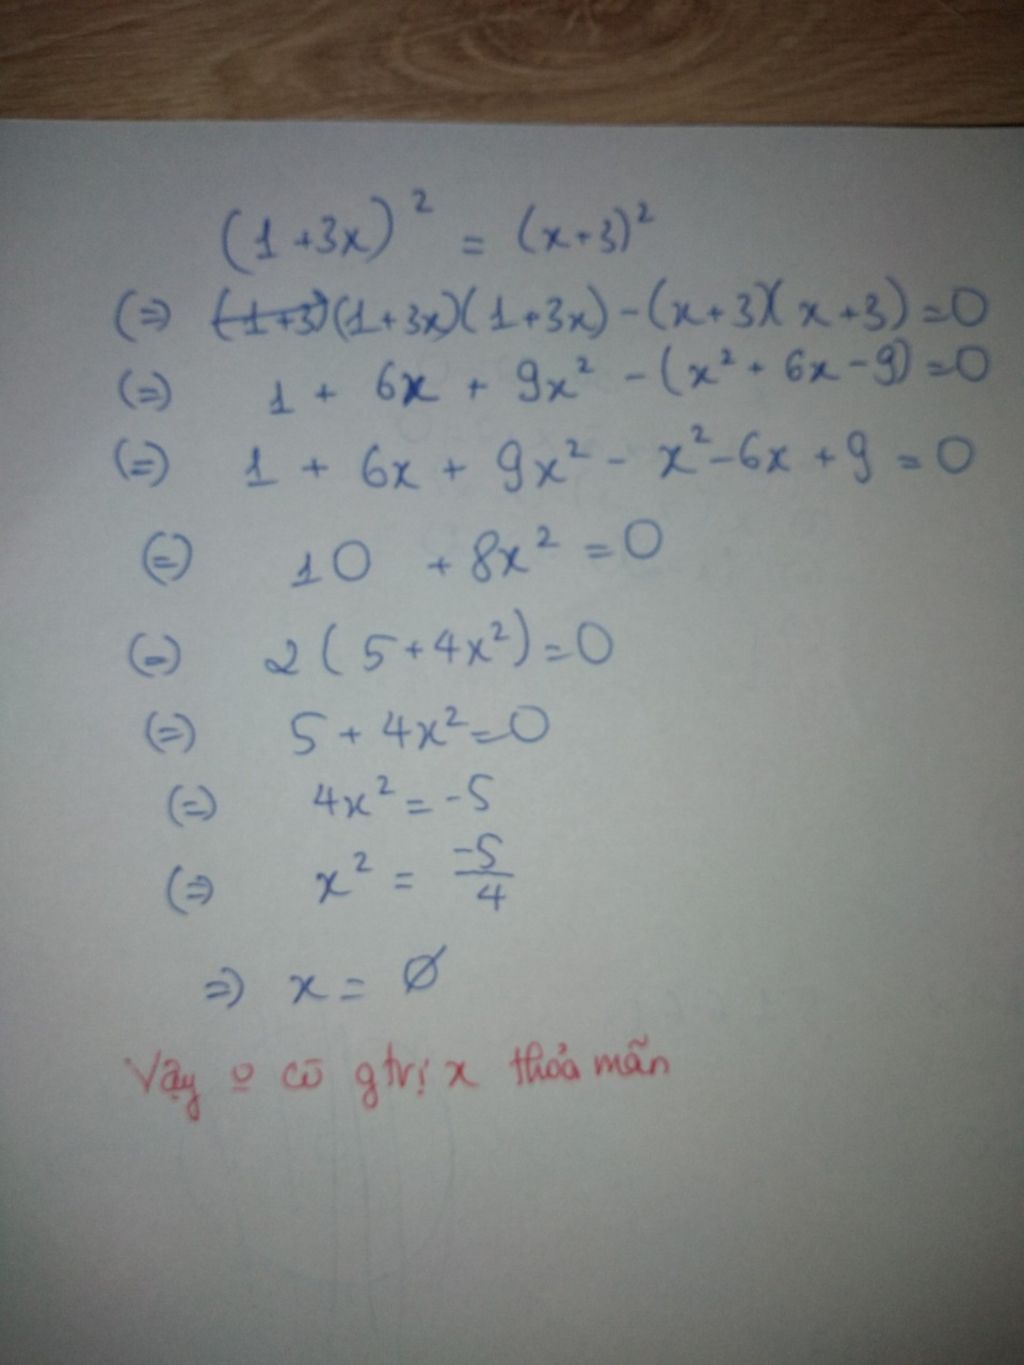 (1+3x)² = (x+3)²
(=) (1+3)(1+3x)(1+3x)-(x+3)(x+3)=0
(=) 1 + 6x + 9x² -(x² + 6x - 9)=0
(=) 1 + 6x + 9x² - x² - 6x + 9 = 0
(=) 10 + 8x² = 0
(=) 2(5+4x²)=0
(=) 5 + 4x² = 0
(=) 4x² = -5
(=) x² = -5/4
=) x = Ø
Vậy o có gtrị x thỏa mãn